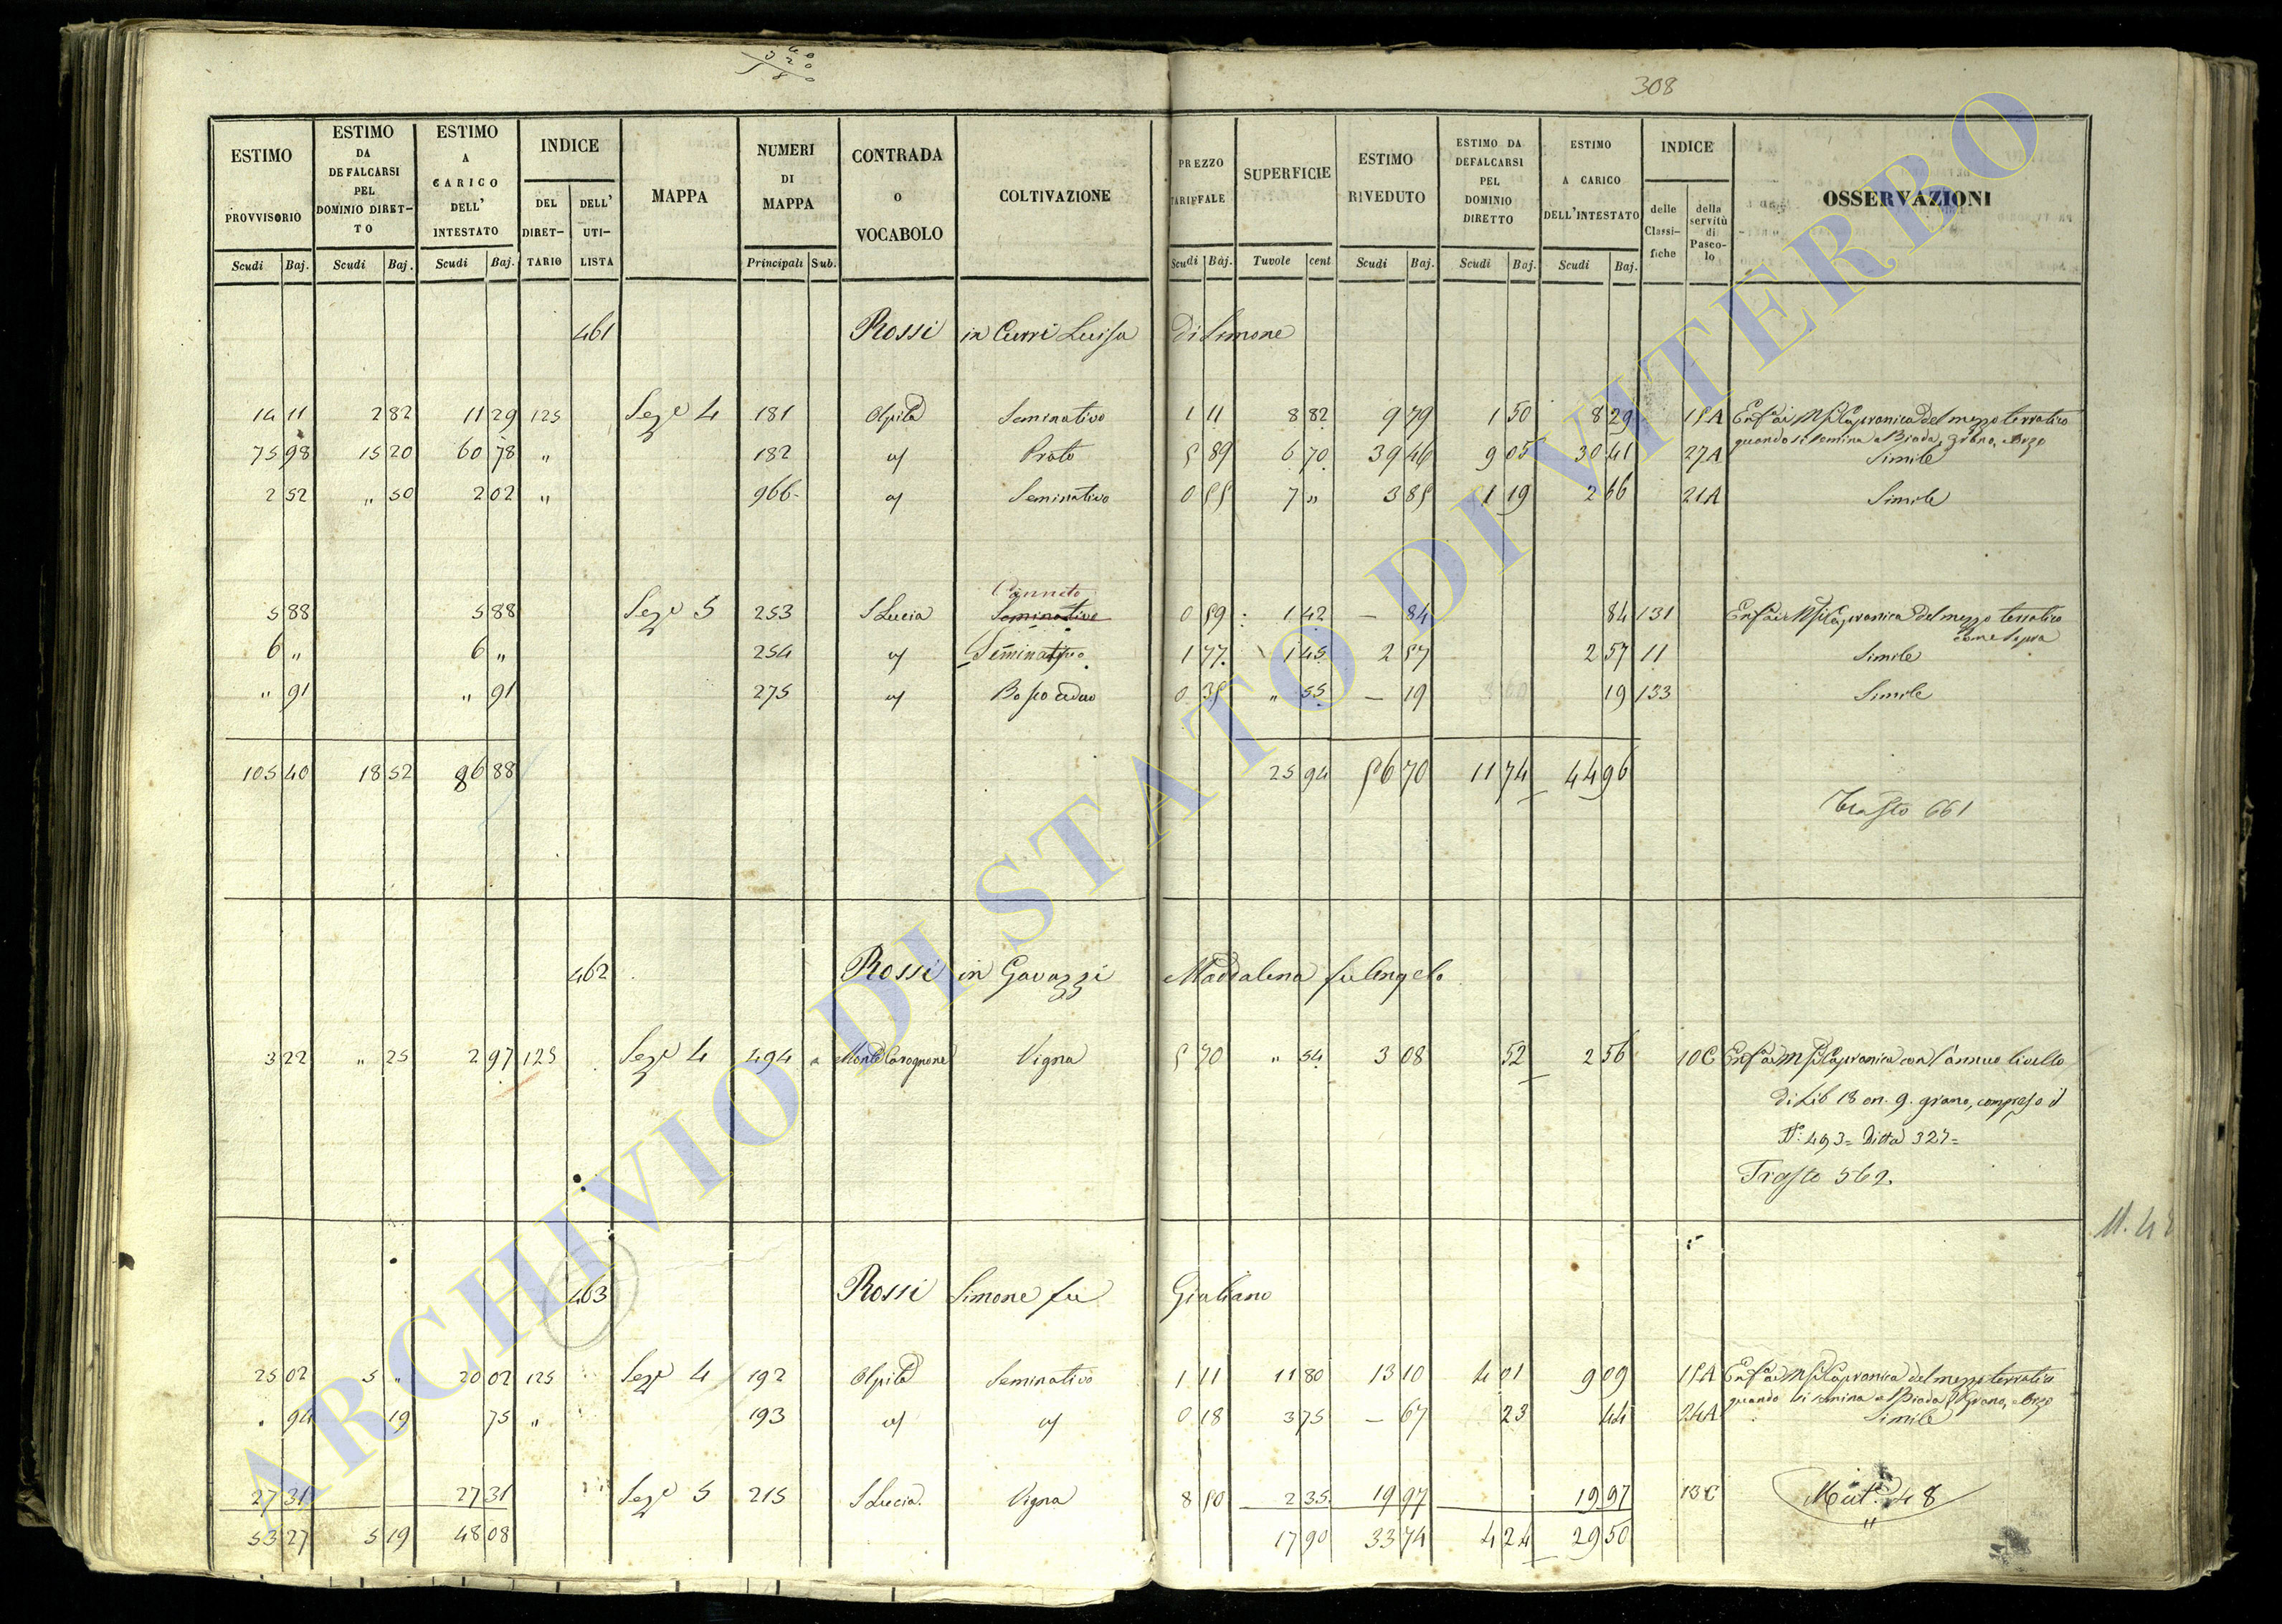 308
ESTIMO PROVVISORIO Scudi Baj.
ESTIMO DA DEFALCARSI PEL DOMINIO DIRETTO Scudi Baj.
ESTIMO A CARICO DELL' INTESTATO Scudi Baj.
INDICE DEL DIRETTARIO DELL' UTILISTA
MAPPA
NUMERI DI MAPPA Principali Sub.
CONTRADA o VOCABOLO
COLTIVAZIONE
PREZZO TARIFFALE Scudi Baj.
SUPERFICIE Tavole cent
ESTIMO RIVEDUTO Scudi Baj.
ESTIMO DA DEFALCARSI PEL DOMINIO DIRETTO Scudi Baj.
ESTIMO A CARICO DELL'INTESTATO Scudi Baj.
INDICE delle Classifiche della servitù di Pascolo
OSSERVAZIONI
461 Rossi in Curri Luisa di Simone
14 11 2 82 11 29 125 Seze 4 181 Seminativo 1 11 8 82 9 79 1 50 8 29 15A Enfa ai M Si Capranica del mezzo terratico
quando si semina a Biada, grano, Orzo
75 98 15 20 60 78 " 182 Prato 5 89 6 70 39 46 9 05 30 41 27A Simile
2 52 " 50 2 02 " 966 Seminativo 0 55 7 " 3 85 1 19 2 66 21A Simile
Canneto
5 88 5 88 Seze 5 253 S Lucia Seminativo 0 59 1 42 — 84 84 131 Enfa ai M Si Capranica del mezzo terratico
come sopra
6 " 6 " 254 Seminativo 1 77 1 45 2 57 2 57 11 Simile
" 91 " 91 275 Bosco ceduo 0 35 " 55 — 19 19 133 Simile
105 40 18 52 86 88 25 94 56 70 11 74 44 96
Trasto 661
462 Rossi in Gavazzi Maddalena fu Angelo
3 22 " 25 2 97 125 Seze 4 494 a Monte Cavagnone Vigna 5 70 " 54 3 08 52 2 56 10C Enfa ai M Si Capranica con l'annuo livello
di Lib 18 on. 9. grano, compreso il
N: 493= Ditta 327=
Trasto 562.
11.48
463 Rossi Simone fu Giuliano
25 02 5 " 20 02 125 Seze 4 192 Seminativo 1 11 11 80 13 10 4 01 9 09 15A Enfa ai M Si Capranica del mezzo terratico
quando si semina a Biada, Grano, Orzo
" 94 19 75 " 193 0 18 3 75 — 67 23 44 24A Simile
27 31 27 31 Seze 5 215 S Lucia. Vigna 8 50 2 35 19 97 19 97 13C Mut. 48
53 27 5 19 48 08 17 90 33 74 4 24 29 50
ARCHIVIO DI STATO DI VITERBO